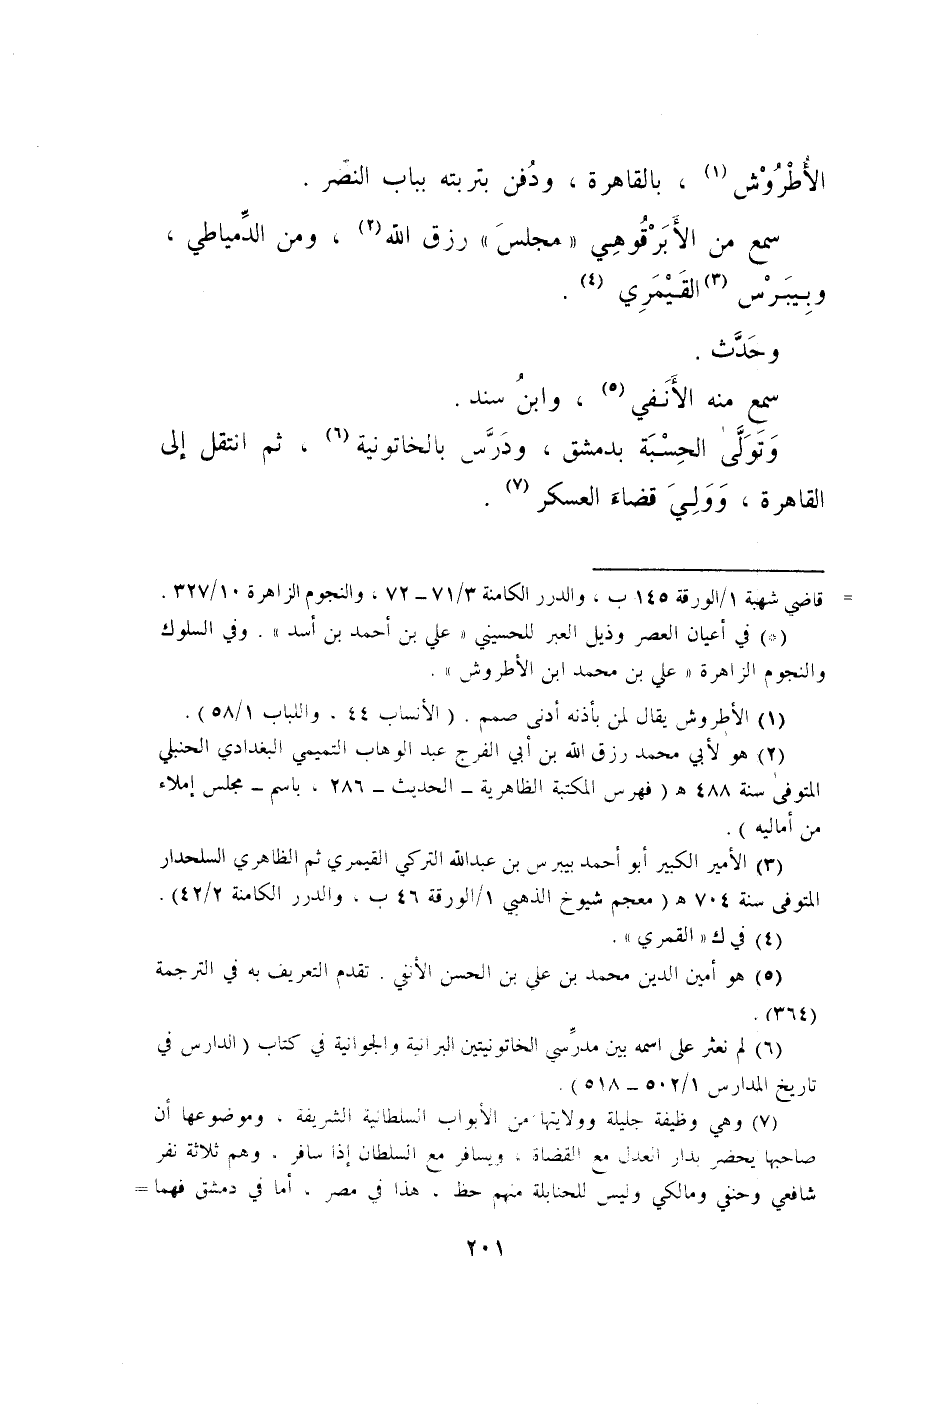 الأُطْرُوْش (١) ، بالقاهرة ، ودُفن بتربته بباب النصْر .
سمع من الأَبَرْقُوهِي « مجلسَ » رزق الله(٢) ، ومن الدِّمياطي ،
وبِيبَرْس (٣)القَيْمَرِي (٤) .
وحَدَّث .
سمع منه الأَنَفي (٥) ، وابنُ سند .
وَتَوَلَّىٰ الحِسْبَة بدمشق ، ودَرَّس بالخاتونية (٦) ، ثم انتقل إلى
القاهرة ، وَوَلِيَ قضاءَ العسكر (٧) .
= قاضي شهبة ١/الورقة ١٤٥ ب ، والدرر الكامنة ٣/٧١ ـ ٧٢ ، والنجوم الزاهرة ١٠/٣٢٧ .
(*) في أعيان العصر وذيل العبر للحسيني « علي بن أحمد بن أسد » . وفي السلوك
والنجوم الزاهرة « علي بن محمد ابن الأطروش » .
(١) الأطروش يقال لمن بأذنه أدنى صمم . ( الأنساب ٤٤ . واللباب ١/٥٨ ) .
(٢) هو لأبي محمد رزق الله بن أبي الفرج عبد الوهاب التميمي البغدادي الحنبلي
المتوفىٰ سنة ٤٨٨ ه ( فهرس المكتبة الظاهرية ـ الحديث ـ ٢٨٦ ، باسم ـ مجلس إملاء
من أماليه ) .
(٣) الأمير الكبير أبو أحمد بيبرس بن عبدالله التركي القيمري ثم الظاهري السلحدار
المتوفى سنة ٧٠٤ ه ( معجم شيوخ الذهبي ١/الورقة ٤٦ ب ، والدرر الكامنة ٢/٤٢) .
(٤) في ك « القمري » .
(٥) هو أمين الدين محمد بن علي بن الحسن الأنفي . تقدم التعريف به في الترجمة
(٣٦٤) .
(٦) لم نعثر على اسمه بين مدرِّسي الخاتونيتين البرانية والجوانية في كتاب ( الدارس في
تاريخ المدارس ١/٥٠٢ ـ ٥١٨ ) .
(٧) وهي وظيفة جليلة وولايتها من الأبواب السلطانية الشريفة ، وموضوعها أن
صاحبها يحضر بدار العدل مع القضاة ، ويسافر مع السلطان إذا سافر . وهم ثلاثة نفر
شافعي وحنفي ومالكي وليس للحنابلة منهم حظ . هذا في مصر . أما في دمشق فهما =
٢٠١